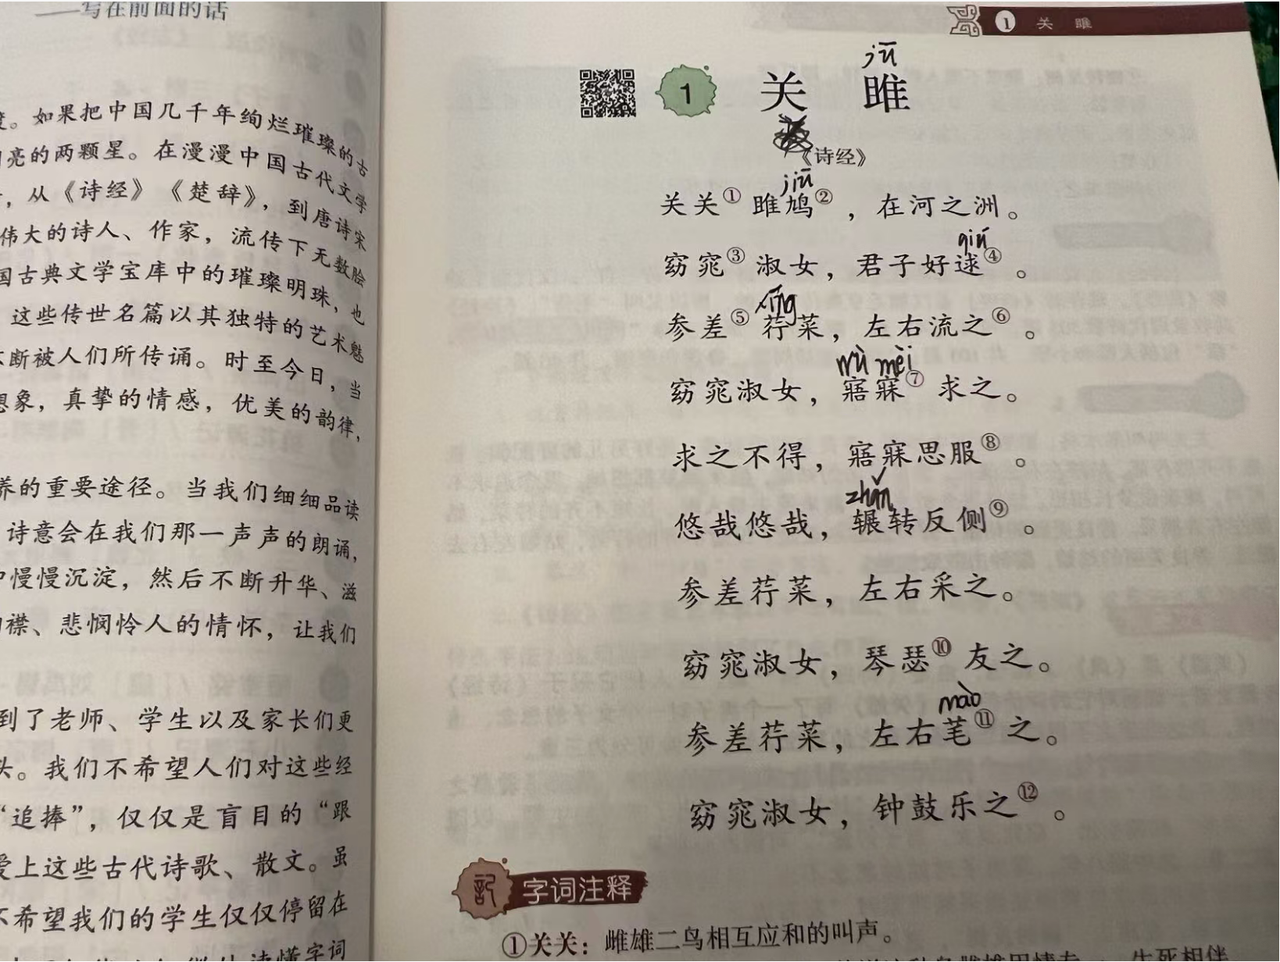 ——写在前面的话
。如果把中国几千年绚烂璀璨的古
亮的两颗星。在漫漫中国古代文学
，从《诗经》《楚辞》，到唐诗宋
伟大的诗人、作家，流传下无数脍
国古典文学宝库中的璀璨明珠，也
这些传世名篇以其独特的艺术魅
不断被人们所传诵。时至今日，当
想象，真挚的情感，优美的韵律，
养的重要途径。当我们细细品读
诗意会在我们那一声声的朗诵，
中慢慢沉淀，然后不断升华、滋
襟、悲悯怜人的情怀，让我们
到了老师、学生以及家长们更
头。我们不希望人们对这些经
“追捧”，仅仅是盲目的“跟
爱上这些古代诗歌、散文。虽
不希望我们的学生仅仅停留在
读懂字词
1 关雎
jū
1 关雎
《诗经》
jiū
关关①雎鸠②，在河之洲。
qiú
窈窕③淑女，君子好逑④。
xìng
参差⑤荇菜，左右流之⑥。
wù mèi
窈窕淑女，寤寐⑦求之。
求之不得，寤寐思服⑧。
zhǎn
悠哉悠哉，辗转反侧⑨。
参差荇菜，左右采之。
窈窕淑女，琴瑟⑩友之。
mào
参差荇菜，左右芼⑪之。
窈窕淑女，钟鼓乐之⑫。
记 字词注释
①关关：雌雄二鸟相互应和的叫声。
生死相伴